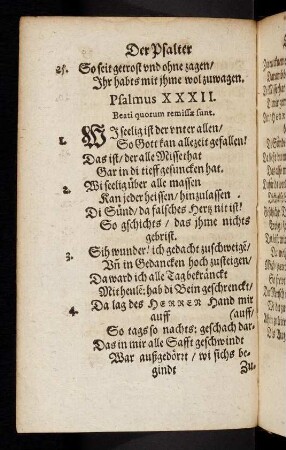 Der Psalter
25. So seit getrost vnd ohne zagen/
Ihr habts mit jhme wol zuwagen.
Psalmus XXXII.
Beati quorum remissæ sunt.
1. WI seelig ist der vnter allen/
So Gott kan allezeit gefallen!
Das ist/ der alle Missethat
Gar in di tieff gesuncken hat.
2. Wi seelig über alle massen
Kan jeder heissen/ hinzulassen
Di Sünd/ da falsches Hertz nit ist!
So gschichts/ das jhme nichts
gebrist.
3. Sih wunder! ich gedacht zuschweigē/
Vn̄ in Gedancken hoch zusteigen/
Da ward ich alle Tag bekränckt
Mit heulē: hab di Bein geschrenckt/
4. Da lag des HERREN Hand mir
auff (auff/
So tags so nachts: geschach dar-
Das in mir alle Safft geschwindt
War außgedörrt/ wi sichs be-
gindt Zu-